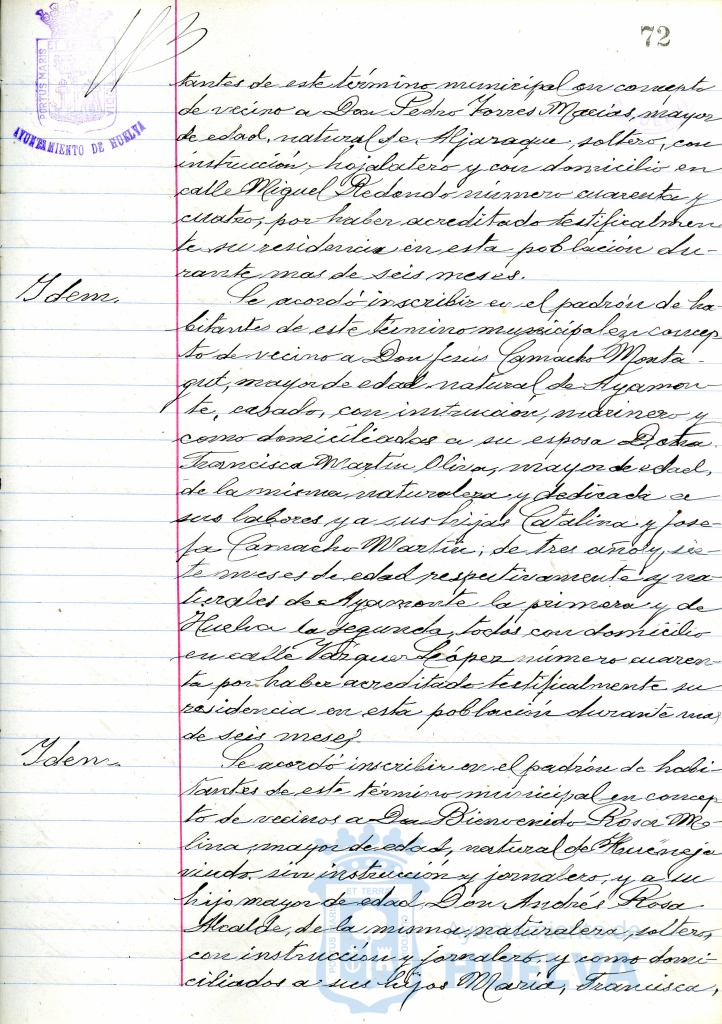 72
PORTUS MARIS ET TERRAE CUSTODIA
AYUNTAMIENTO DE HUELVA
tantes de este término municipal en concepto
de vecino a Don Pedro Torres Macías, mayor
de edad, natural de Aljaraque, soltero, con
instrucción, hojalatero y con domicilio en
calle Miguel Redondo número cuarenta y
cuatro, por haber acreditado testificalmen
te su residencia en esta población du-
rante mas de seis meses.
Idem.
Se acordó inscribir en el padrón de ha
bitantes de este término municipal en concep
to de vecino a Don Jesús Camacho Monta-
gut, mayor de edad, natural de Ayamon-
te, casado, con instrucción, marinero y
como domiciliadas a su esposa Doña
Francisca Martin Oliva, mayor de edad,
de la misma naturaleza y dedicada a
sus labores y a sus hijas Catalina y Jose-
fa Camacho Martín, de tres años y sie-
te meses de edad respectivamente y na-
turales de Ayamonte la primera y de
Huelva la segunda, todos con domicilio
en calle Vázquez López número cuaren-
ta por haber acreditado testificalmente su
residencia en esta población durante mas
de seis meses.
Idem.
Se acordó inscribir en el padrón de habi-
tantes de este término municipal en concep
to de vecinos a Don Bienvenido Rosa Mo-
lina, mayor de edad, natural de Hueneja
viudo, sin instrucción y jornalero, y a su
hijo mayor de edad, Don Andrés Rosa
Alcalde, de la misma naturaleza, soltero,
con instrucción y jornalero, y como domi-
ciliados a sus hijos María, Francisca,
Ayuntamiento de
HUELVA